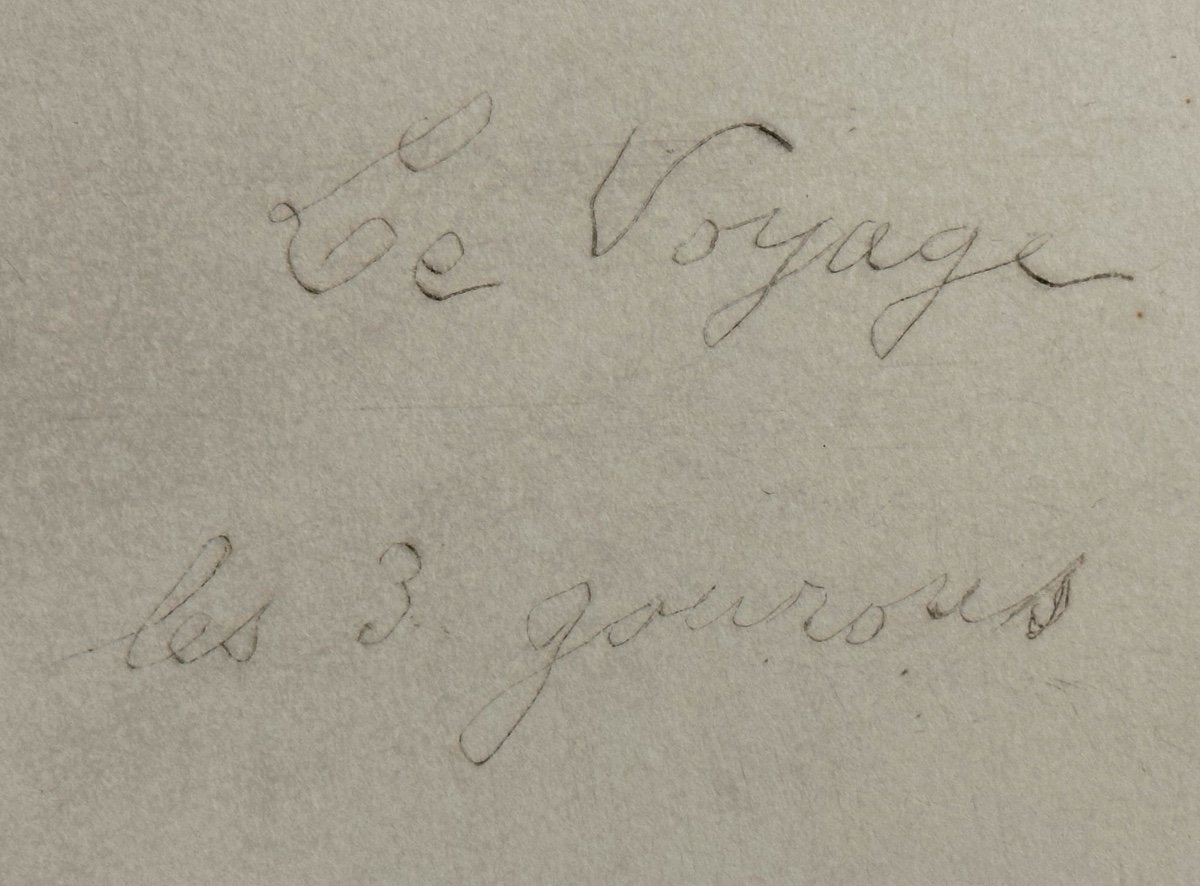 Le Voyage
les 3 gourous